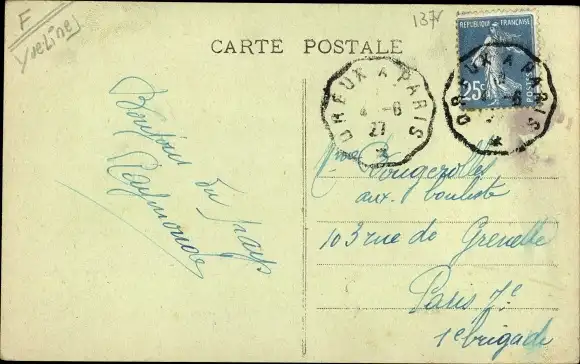 F
Yvelines
137
CARTE POSTALE
REPUBLIQUE FRANÇAISE
25c
POSTES
DREUX A PARIS
4 -6
27
DREUX A PARIS
4 -6
27
Bonjour du pays
Raymonde
Mme Vougerolles
aux
103 rue de Grenelle
Paris 7e
1e brigade